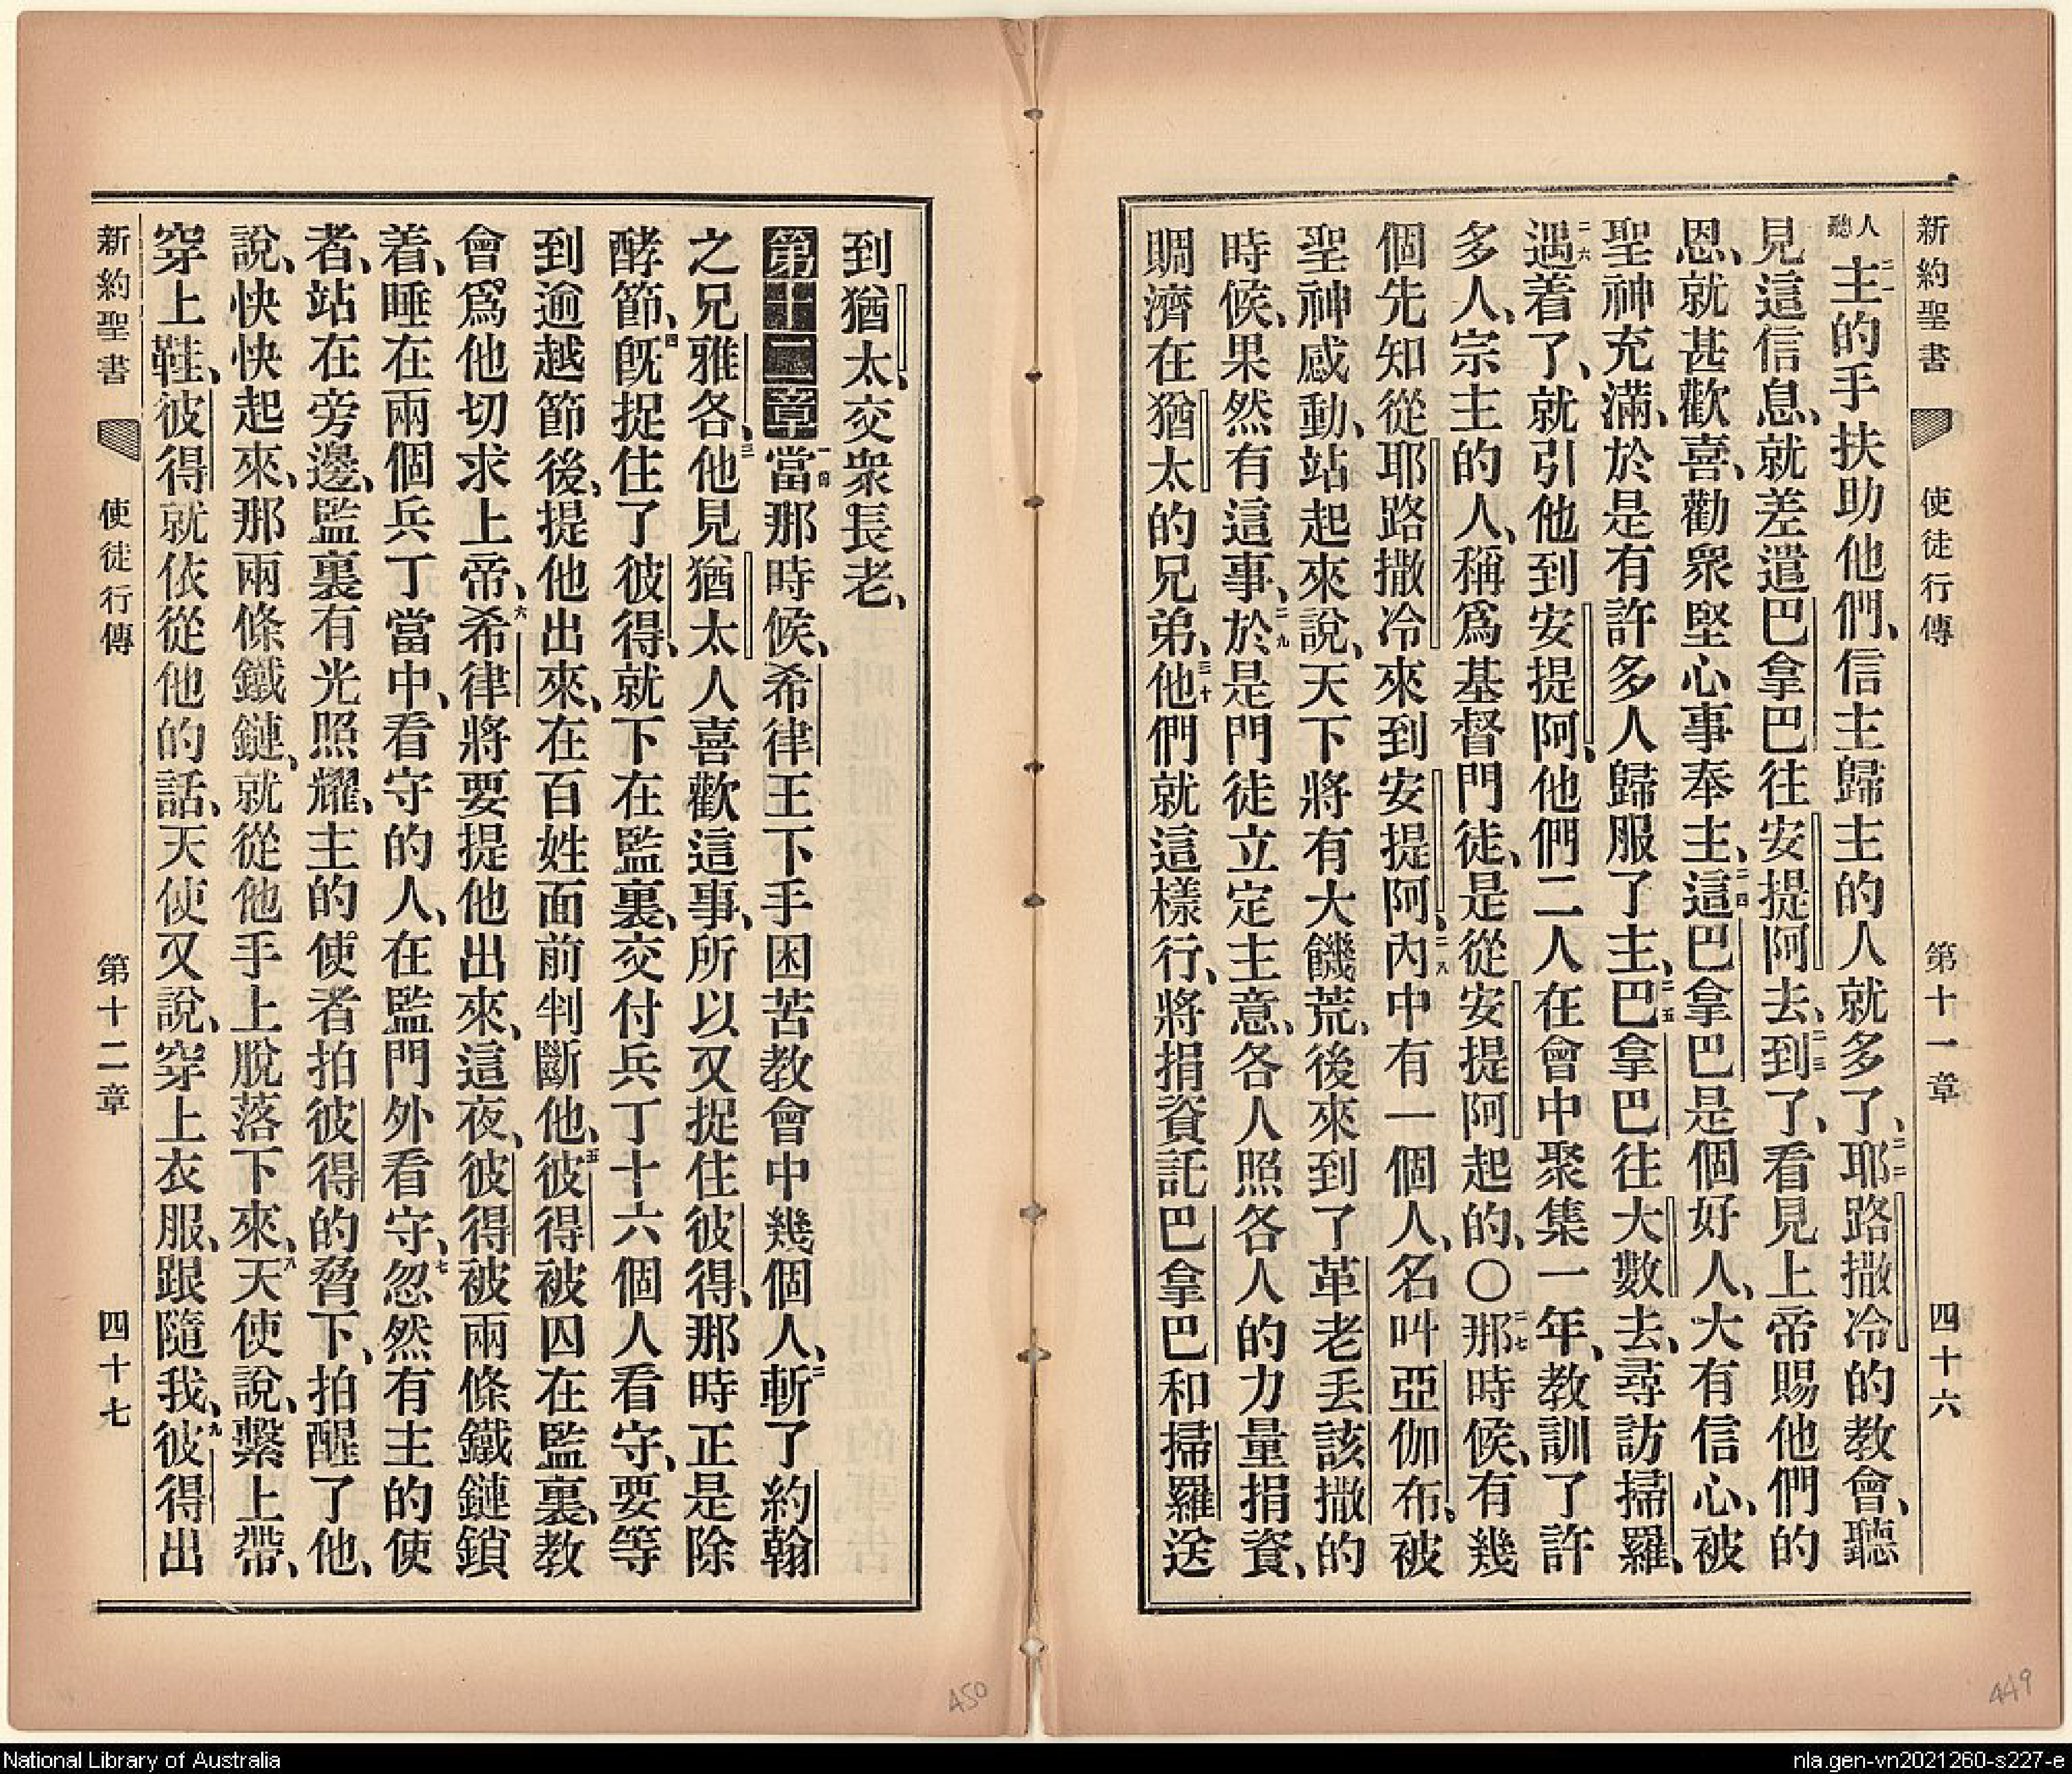 新約聖書 使徒行傳 第十一章 四十六
人聽二一主的手扶助他們、信主歸主的人就多了、二二耶路撒冷的教會、聽
見這信息、就差遣巴拿巴往安提阿去、二三到了、看見上帝賜他們的
恩、就甚歡喜、勸衆堅心事奉主、二四這巴拿巴是個好人、大有信心、被
聖神充滿、於是有許多人歸服了主、二五巴拿巴往大數去、尋訪掃羅、
二六遇着了、就引他到安提阿、他們二人在會中聚集一年、教訓了許
多人、宗主的人、稱爲基督門徒、是從安提阿起的、〇二七那時候、有幾
個先知從耶路撒冷來到安提阿、二八內中有一個人、名叫亞伽布、被
聖神感動、站起來說、天下將有大饑荒、後來到了革老丢該撒的
時候、果然有這事、二九於是門徒立定主意、各人照各人的力量捐資、
賙濟在猶太的兄弟、三十他們就這樣行、將捐資託巴拿巴和掃羅送
到猶太、交衆長老、
第十二章 一當那時候、希律王下手困苦教會中幾個人、二斬了約翰
之兄雅各、三他見猶太人喜歡這事、所以又捉住彼得、那時正是除
酵節、四旣捉住了彼得、就下在監裏、交付兵丁十六個人看守、要等
到逾越節後、提他出來、在百姓面前判斷他、五彼得被囚在監裏、教
會爲他切求上帝、六希律將要提他出來、這夜、彼得被兩條鐵鏈鎖
着、睡在兩個兵丁當中、看守的人、在監門外看守、七忽然有主的使
者、站在旁邊、監裏有光照耀、主的使者拍彼得的脅下、拍醒了他、
說、快快起來、那兩條鐵鏈、就從他手上脫落下來、八天使說、繫上帶、
穿上鞋、彼得就依從他的話、天使又說、穿上衣服、跟隨我、九彼得出
新約聖書 使徒行傳 第十二章 四十七
450
449
National Library of Australia
nla.gen-vn2021260-s227-e